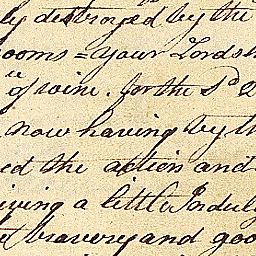 ly destroyed by the
rooms = your Lordsh
of wine. for the Sd
now having by th
ed the action and
iving a little Indul
bravery and goo